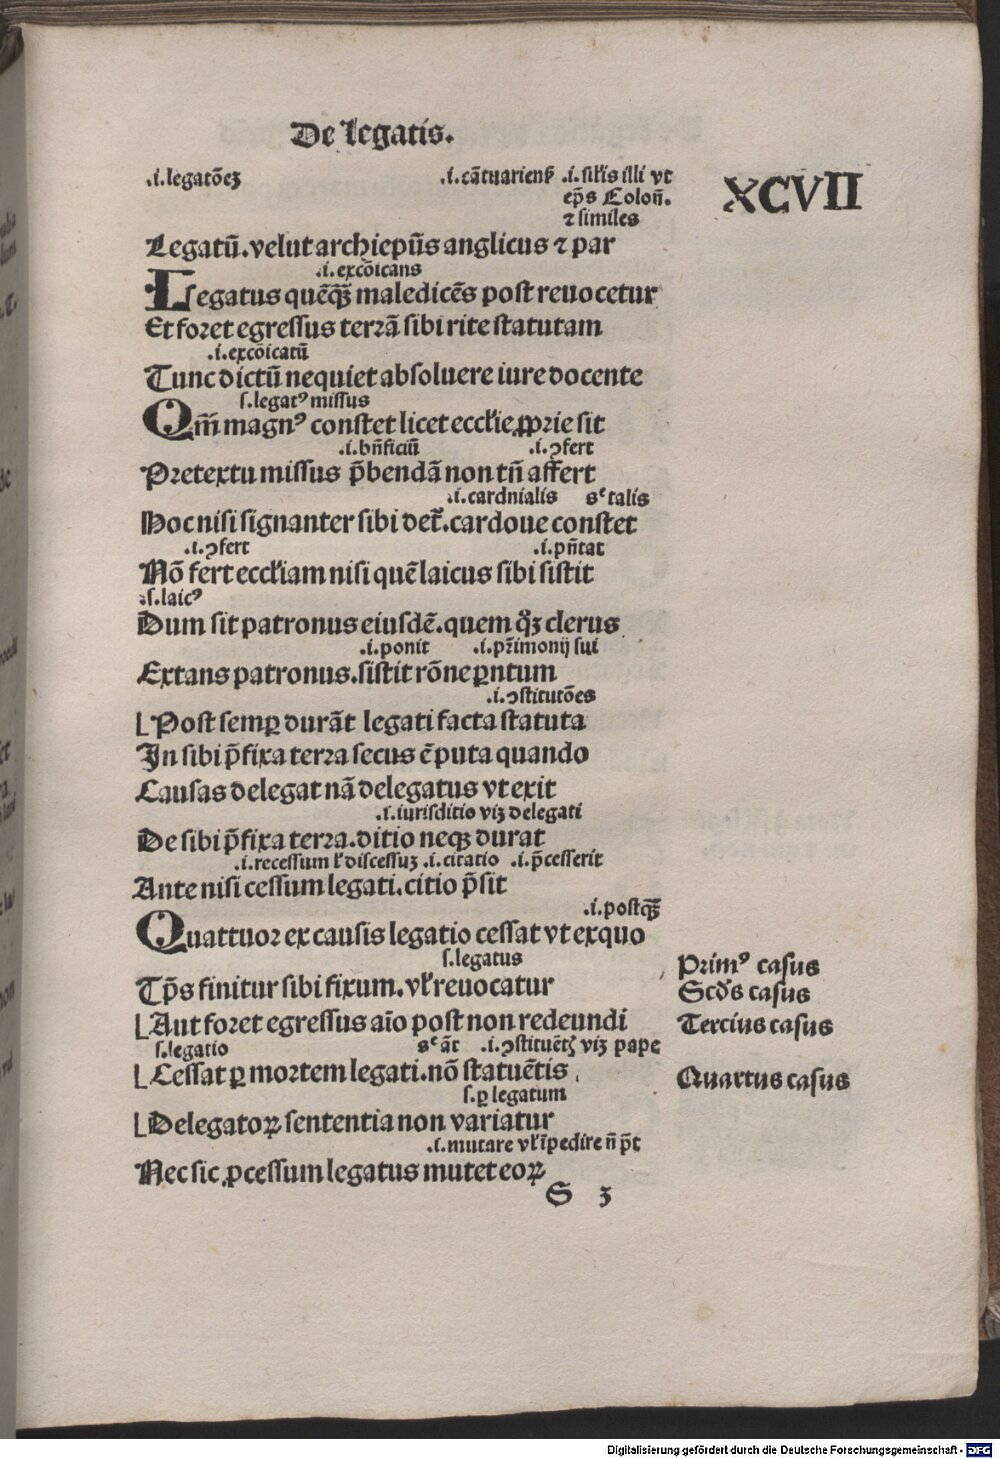 De legatis.
.i. legatōeȝ .i. cātuarienẜ .i. silis illi vt
ep̄s Coloñ.
⁊ similes
XCVII
Legatū. velut archiepūs anglicus ⁊ par
.i. excōicans
Legatus quēqȝ maledicēs post reuocetur
Et foret egressus terrā sibi rite statutam
.i. excōicatū
Tunc dictū nequiet absoluere iure docente
s. legatꝰ missus
Qm̄ magnꝰ constet licet eccl'ie ꝓprie sit
.i. bn̄ficiū .i. ↄfert
Pretextu missus p̄bendā non tn̄ affert
.i. cardnialis sᶜ talis
Hoc nisi signanter sibi det̄. cardoue constet
.i. ↄfert .i. pn̄tat
Nō fert eccl'iam nisi quē laicus sibi sistit
.s. laicꝰ
Dum sit patronus eiusdē. quem qȝ clerus
.i. ponit .i. pr̄imonij sui
Extans patronus. sistit rōne ꝑntum
.i. ↄstitutōes
Post semꝑ durāt legati facta statuta
In sibi p̄fixa terra secus ē puta quando
Causas delegat nā delegatus vt exit
.i. iurisditio viȝ delegati
De sibi p̄fixa terra. ditio neqȝ durat
.i. recessum l' discessuȝ .i. citatio .i. p̄cesserit
Ante nisi cessum legati. citio p̄sit
.i. postqȝ
Quattuor ex causis legatio cessat vt exquo
s. legatus
Primꝰ casus
Tp̄s finitur sibi fixum. vl' reuocatur
Scd's casus
Aut foret egressus aīo post non redeundi
Tercius casus
s. legatio sᶜ āt .i. ↄstituētꝭ viȝ pape
Cessat ꝑ mortem legati. nō statuētis
Quartus casus
s. ꝑ legatum
Delegatoꝝ sententia non variatur
.s. mutare vl' īpedire n̄ p̄t
Nec sic ꝓcessum legatus mutet eoꝝ
S 3
Digitalisierung gefördert durch die Deutsche Forschungsgemeinschaft - DFG